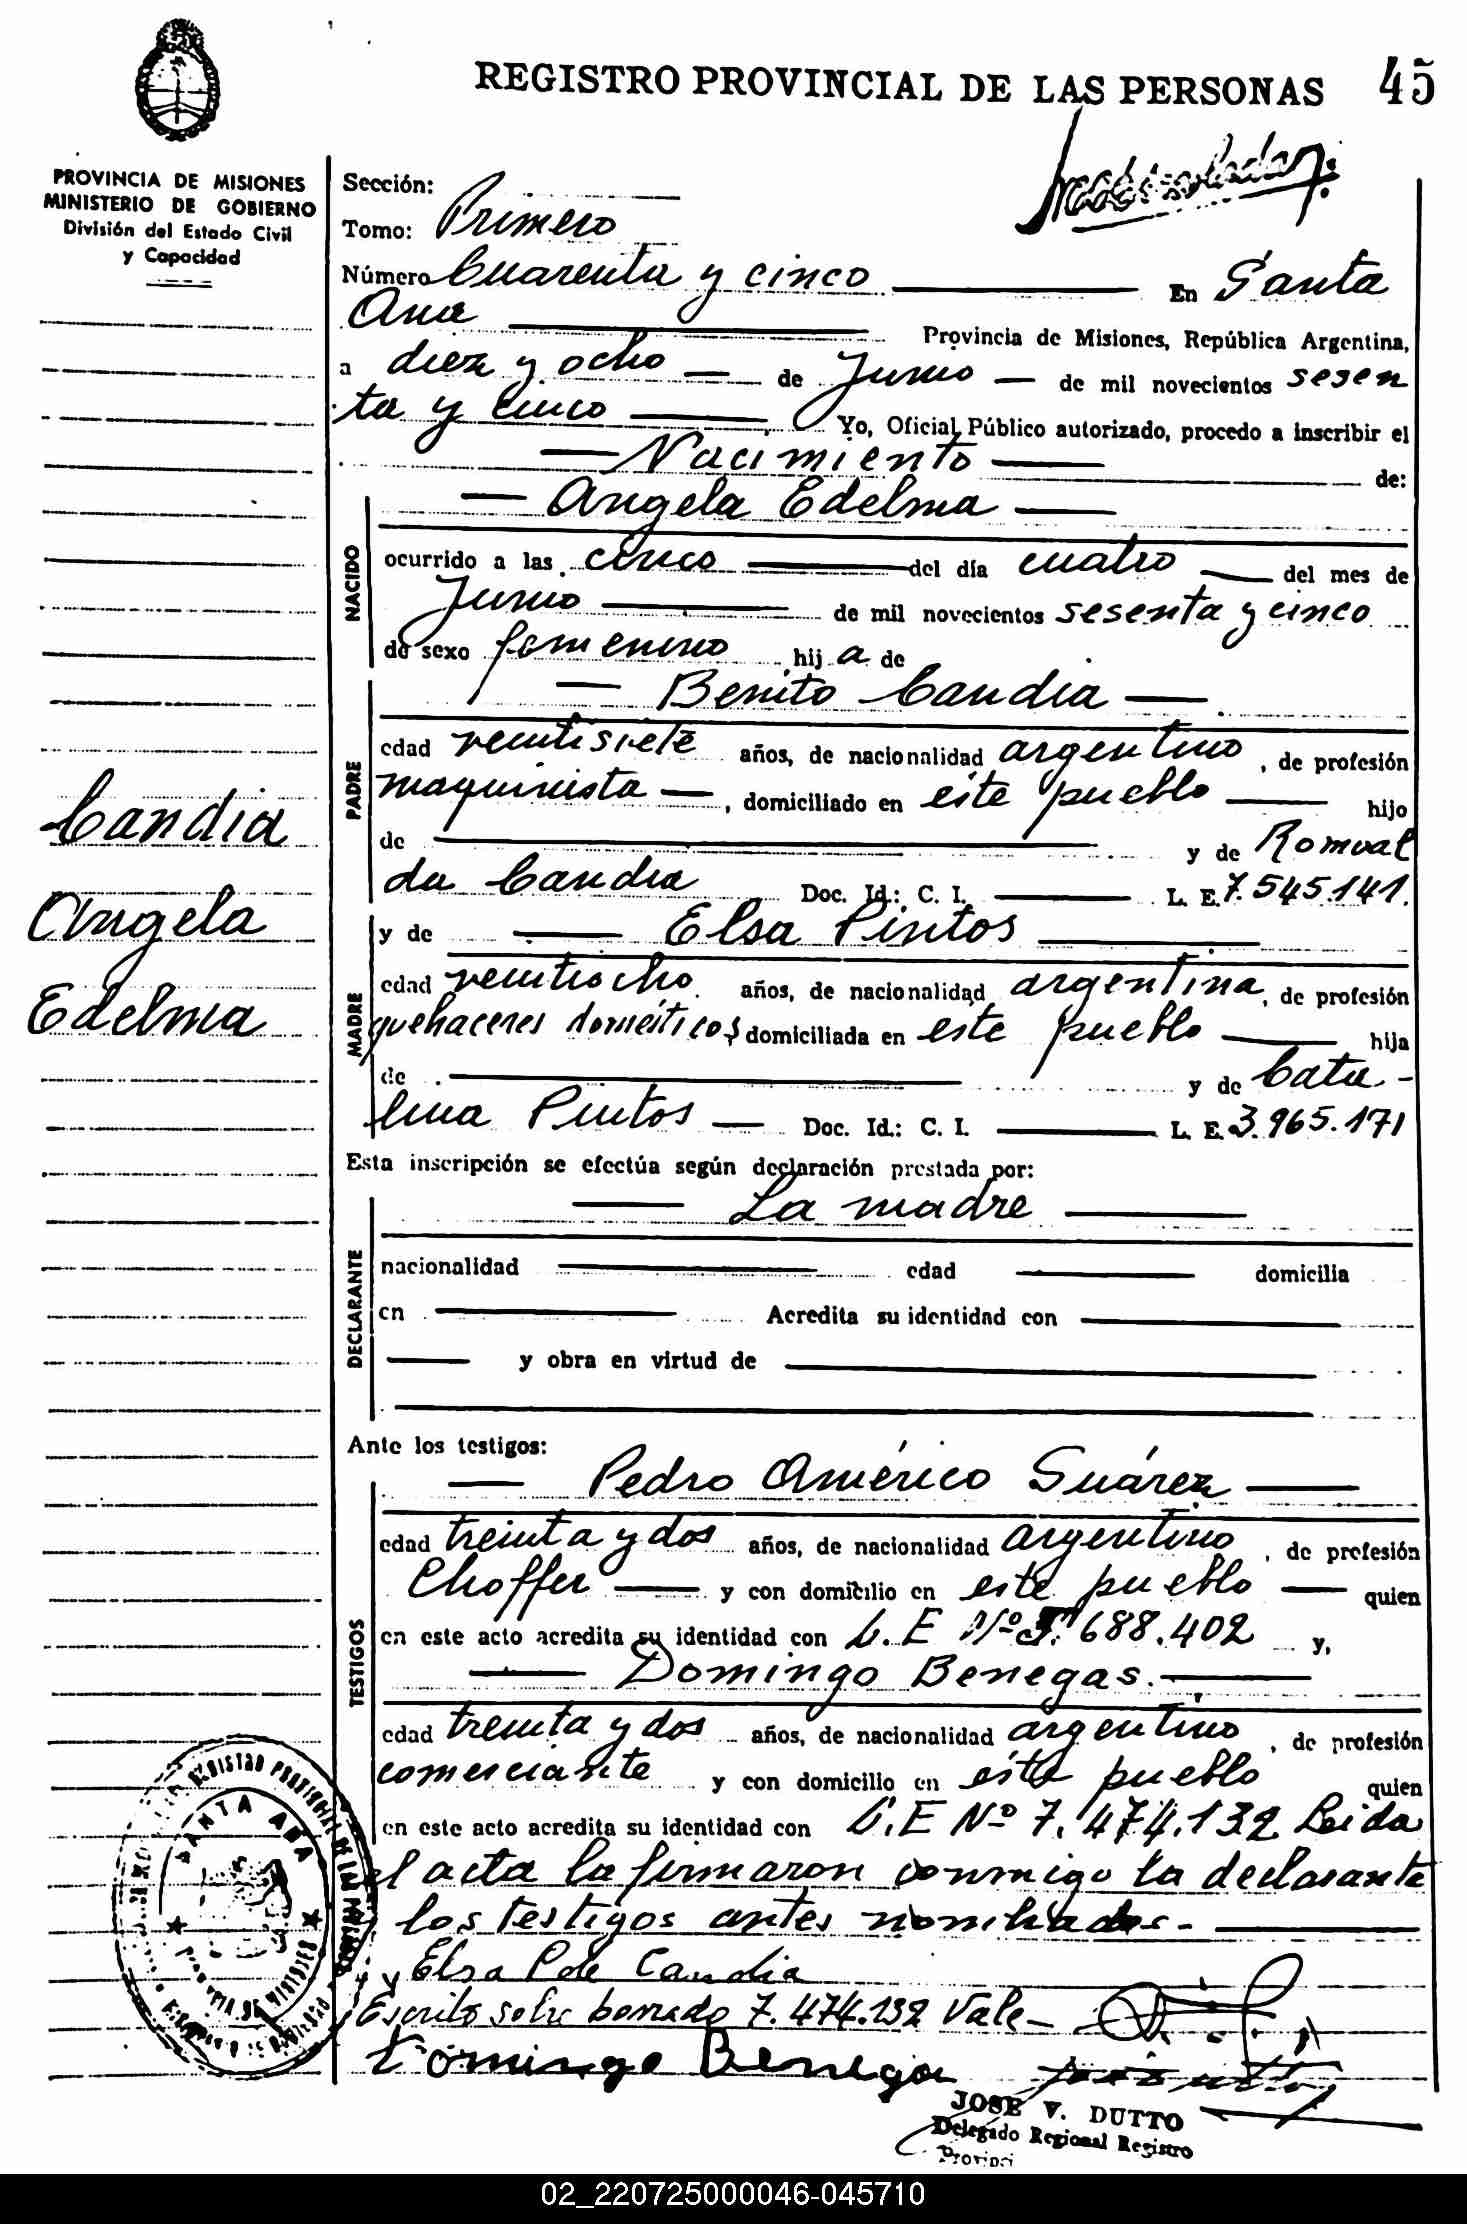 REGISTRO PROVINCIAL DE LAS PERSONAS 45
PROVINCIA DE MISIONES
MINISTERIO DE GOBIERNO
División del Estado Civil
y Capacidad
Candia
Angela
Edelma
Sección:
Tomo: Primero
Número Cuarenta y cinco En Santa
Ana Provincia de Misiones, República Argentina,
a diez y ocho de Junio de mil novecientos sesen
ta y cinco Yo, Oficial Público autorizado, procedo a inscribir el
Nacimiento de:
NACIDO
Angela Edelma
ocurrido a las cinco del día cuatro del mes de
Junio de mil novecientos sesenta y cinco
de sexo femenino hij a de
PADRE
Benito Candia
edad veintisiete años, de nacionalidad argentino, de profesión
maquinista, domiciliado en este pueblo hijo
de y de Romual
da Candia Doc. Id.: C. I. L. E. 7.545.141.
MADRE
y de Elsa Pintos
edad veintiocho años, de nacionalidad argentina, de profesión
quehaceres domésticos domiciliada en este pueblo hija
de y de Cata-
lina Pintos Doc. Id.: C. I. L. E. 3.965.171
Esta inscripción se efectúa según declaración prestada por:
DECLARANTE
La madre
nacionalidad edad domicilia
en Acredita su identidad con
y obra en virtud de
Ante los testigos:
TESTIGOS
Pedro Américo Suárez
edad treinta y dos años, de nacionalidad argentino, de profesión
Choffer y con domicilio en este pueblo quien
en este acto acredita su identidad con L.E Nº 688.402 y,
Domingo Benegas.
edad treinta y dos años, de nacionalidad argentino, de profesión
comerciante y con domicilio en este pueblo quien
en este acto acredita su identidad con L.E Nº 7.474.132 Leida
el acta la firmaron conmigo la declarante
y los testigos antes nombrados.-
Elsa P de Candia
Escrito sobre borrado 7.474.132 Vale-
Domingo Benega
SANTA ANA
JOSE V. DUTTO
Delegado Regional Registro
Provinci
02_220725000046-045710